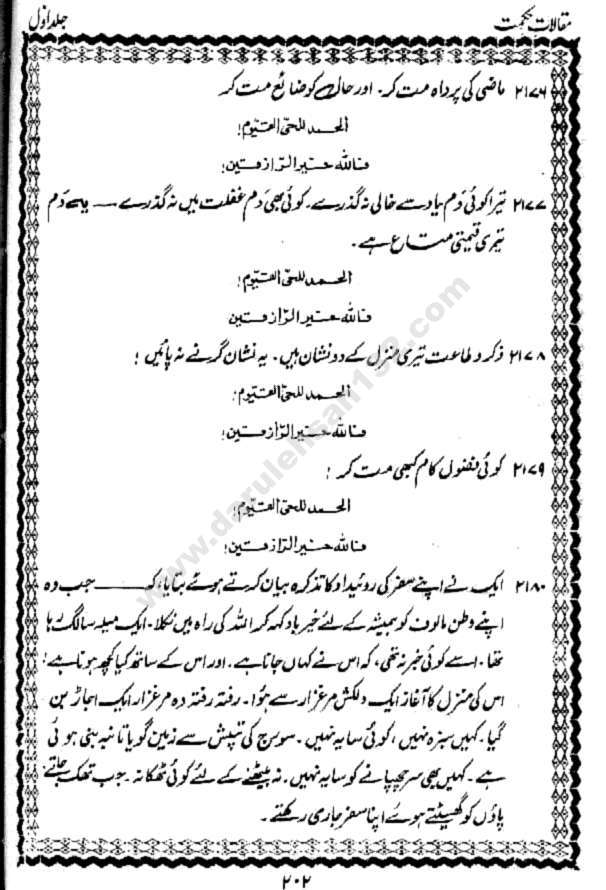 مقالاتِ حکمت
جلد اوّل
۲۱۷۶ ماضی کی پرواہ مت کر۔ اور حال کو ضائع مت کر
الحمد للحیّ القیّوم!
فاللہ خیر الرّازقین!
۲۱۷۷ تیرا کوئی دَم یاد سے خالی نہ گذرے۔ کوئی بھی دَم غفلت میں نہ گذرے —— یہی دَم
تیری قیمتی متاع ہے۔
الحمد للحیّ القیّوم!
فاللہ خیر الرّازقین
۲۱۷۸ ذکر و طاعت تیری منزل کے دو نشان ہیں۔ یہ نشان گرنے نہ پائیں!
الحمد للحیّ القیّوم!
فاللہ خیر الرّازقین!
۲۱۷۹ کوئی فضول کام کبھی مت کر!
الحمد للحیّ القیّوم!
فاللہ خیر الرّازقین!
۲۱۸۰ ایک نے اپنے سفر کی روئیداد کا تذکرہ بیان کرتے ہوئے بتایا، کہ —— جب وہ
اپنے وطن مالوف کو ہمیشہ کے لئے خیرباد کہہ کر اللہ کی راہ میں نکلا۔ ایک میلہ سا لگ رہا
تھا۔ اسے کوئی خبر نہ تھی، کہ اس نے کہاں جانا ہے۔ اور اس کے ساتھ کیا کچھ ہونا ہے!
اس کی منزل کا آغاز ایک دلکش مرغزار سے ہوُا۔ رفتہ رفتہ وہ مرغزار ایک اجاڑ بن
گیا۔ کہیں سبزہ نہیں، کوئی سایہ نہیں۔ سورج کی تپش سے زمین گویا تانبہ بنی ہوئی
ہے۔ کہیں بھی سر چھپانے کو سایہ نہیں۔ نہ بیٹھنے کے لئے کوئی ٹھکانہ۔ جب تھک جاتے
پاؤں کو گھسیٹتے ہوئے اپنا سفر جاری رکھتے۔
۲۰۲
www.darulehsan199.com